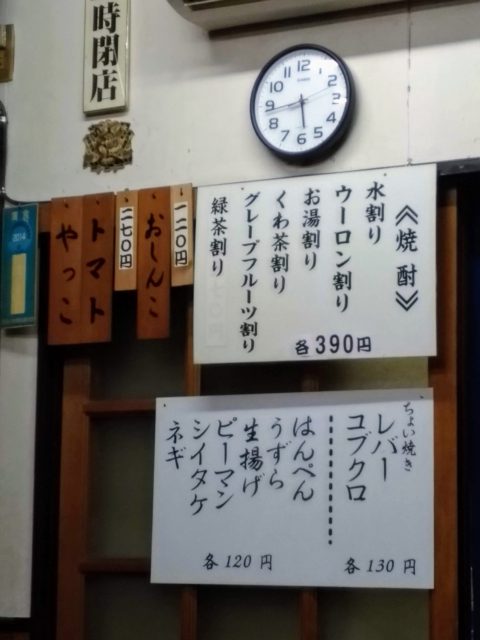 時閉店
12
11
10
9
8
7
6
5
4
3
2
1
CASIO
2014
やっこ
トマト
二七〇円
おしんこ
一一〇円
《焼酎》
水割り
ウーロン割り
お湯割り
くわ茶割り
グレープフルーツ割り
緑茶割り
各390円
ちょい焼き
レバー
コブクロ
各130円
はんぺん
うずら
生揚げ
ピーマン
シイタケ
ネギ
各120円